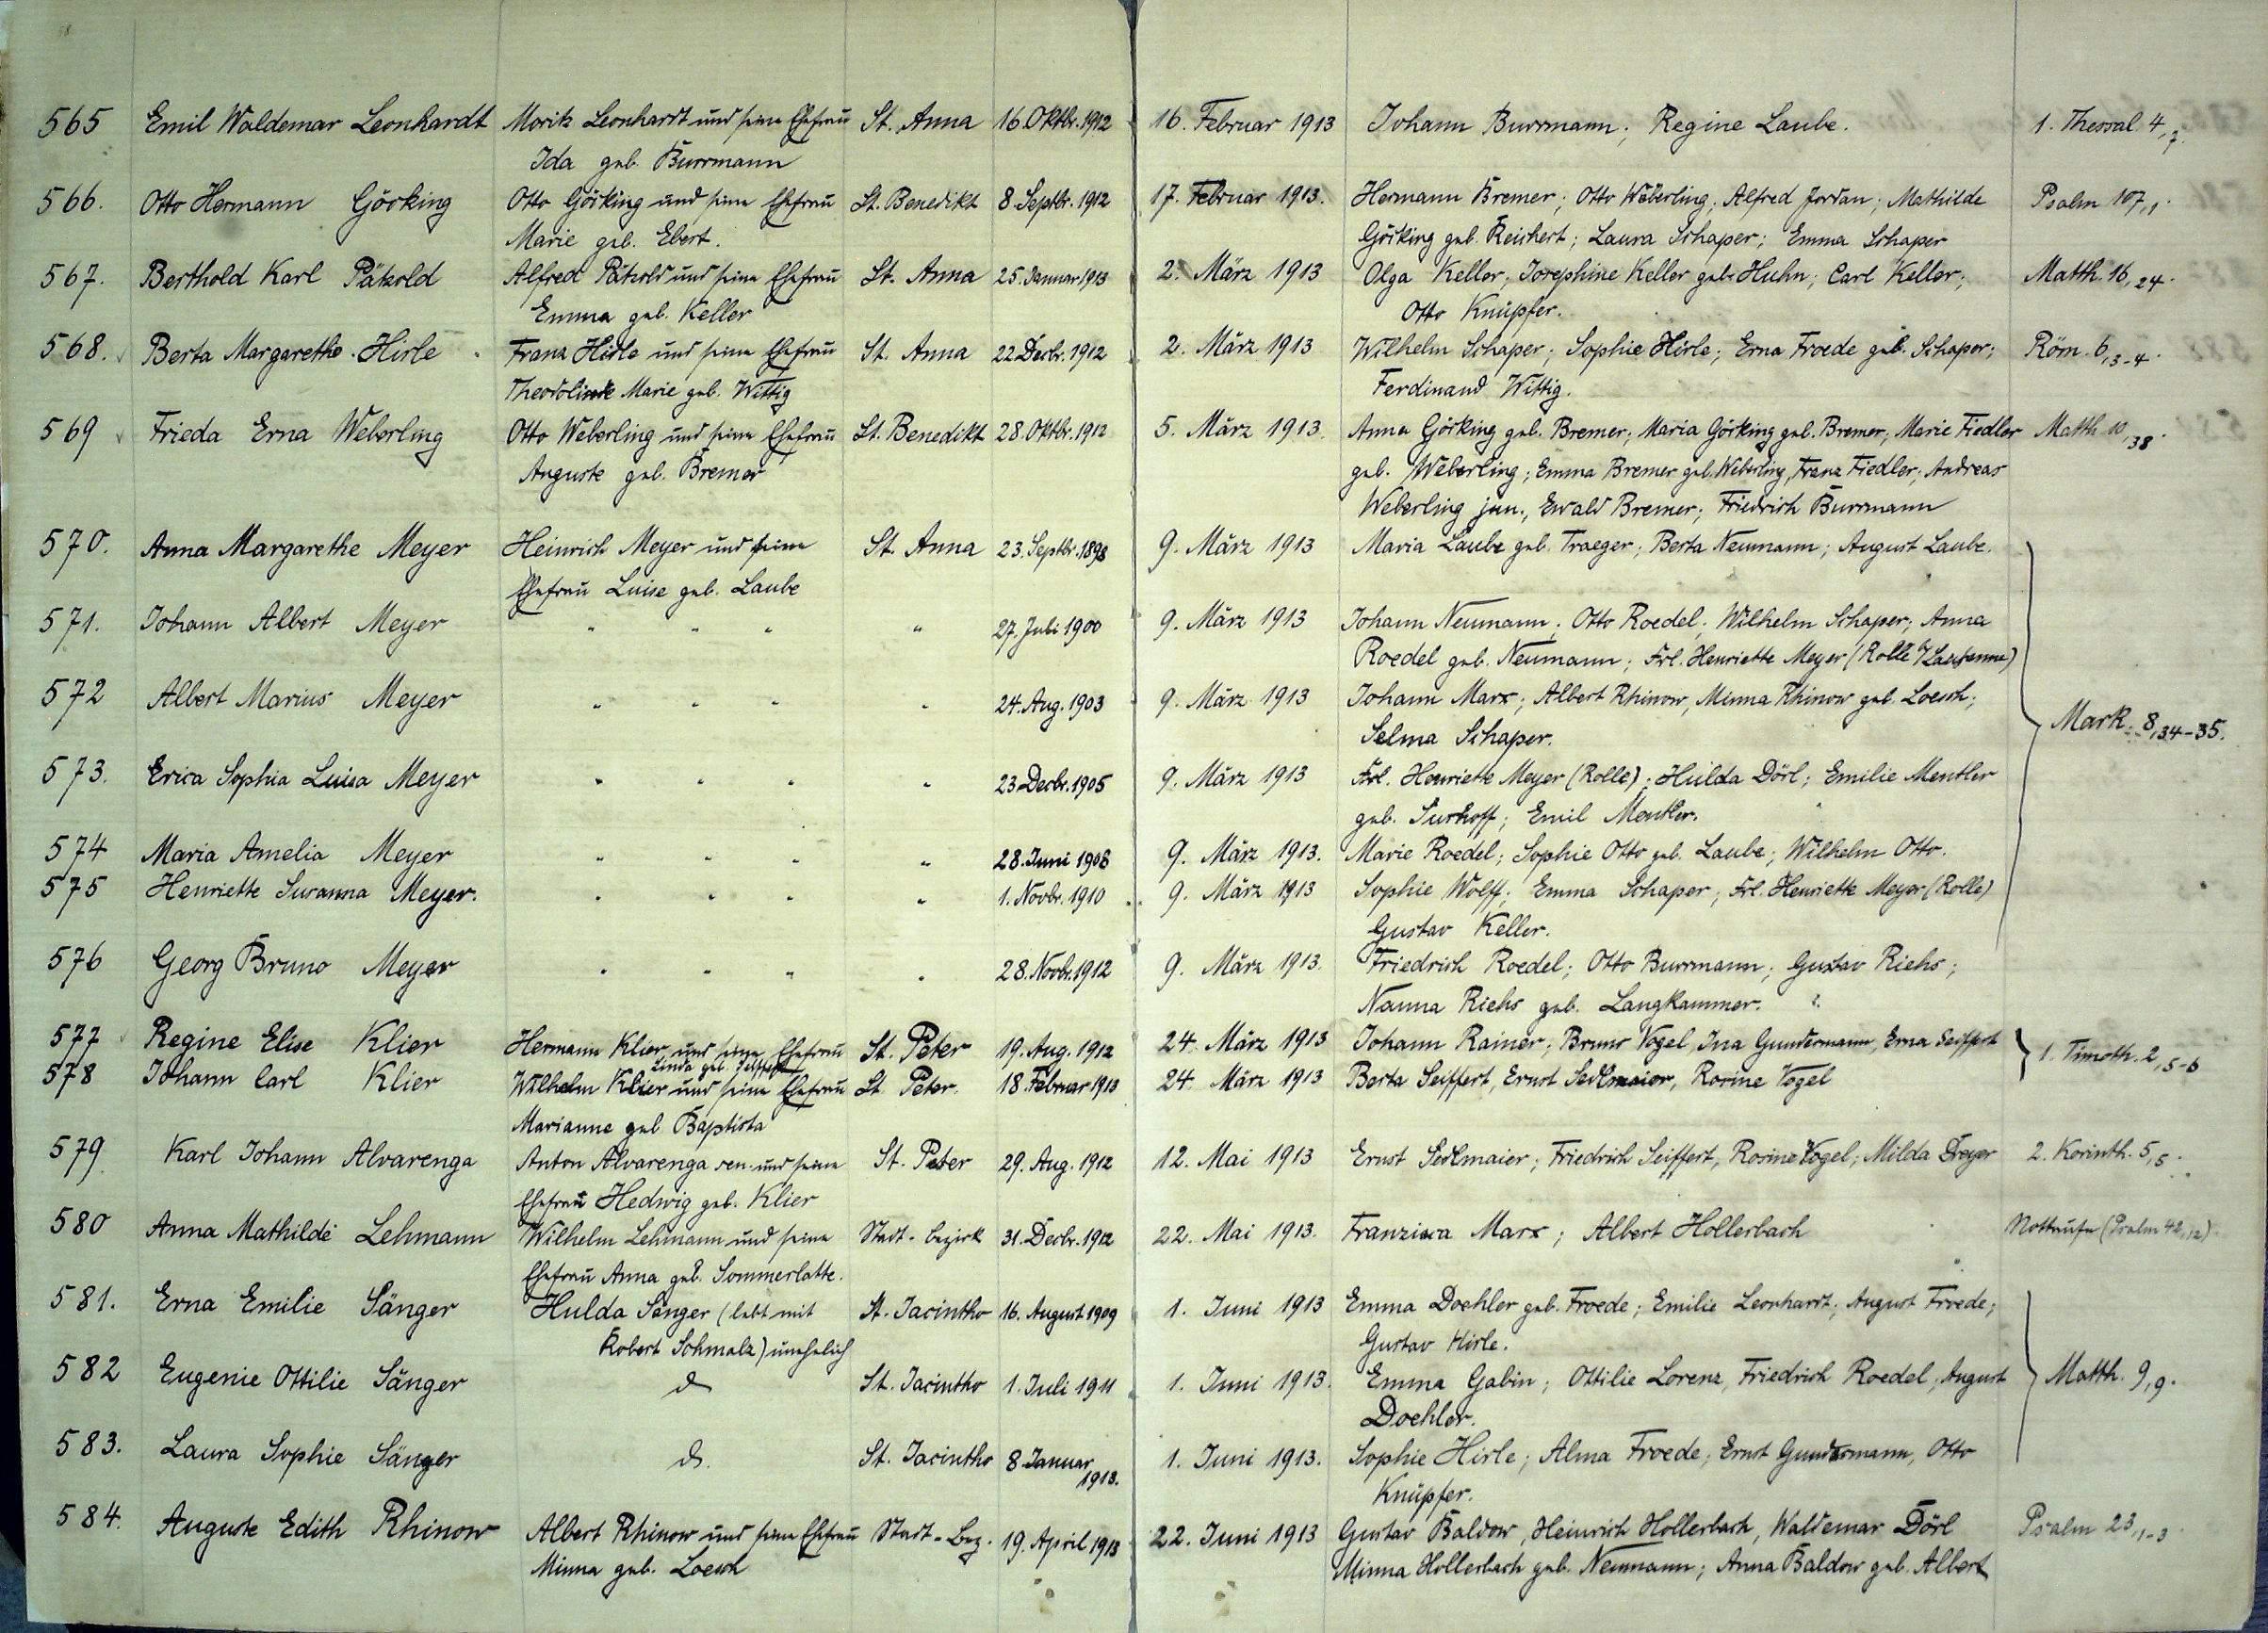 565 Emil Waldemar Leonhardt Moritz Leonhardt und seine Ehefrau St. Anna 16. Oktbr. 1912 16. Februar 1913 Johann Burrmann; Regine Laube. 1. Thessal. 4,7.
Ida geb. Burrmann
566. Otto Hermann Görking Otto Görking und seine Ehefrau St. Benedikt 8. Septbr. 1912 17. Februar 1913. Hermann Bremer; Otto Weberling; Alfred Jordan; Mathilde Psalm 107,1.
Marie geb. Ebert. Görking geb. Reichert; Laura Schaper; Emma Schaper
567. Berthold Karl Pätzold Alfred Pätzold und seine Ehefrau St. Anna 25. Januar 1913 2. März 1913 Olga Keller; Josephine Keller geb. Huhn; Carl Keller; Matth. 16,24.
Emma geb. Keller Otto Knüpfer.
568. Berta Margarethe Hirle Franz Hirle und seine Ehefrau St. Anna 22. Decbr. 1912 2. März 1913 Wilhelm Schaper; Sophie Hirle; Erna Froede geb. Schaper; Röm. 6,3-4.
Marie geb. Wittig Ferdinand Wittig.
569 Frieda Erna Weberling Otto Weberling und seine Ehefrau St. Benedikt 28. Oktbr. 1912 5. März 1913. Anna Görking geb. Bremer; Maria Görking geb. Bremer; Marie Fiedler Matth. 10,38.
Auguste geb. Bremer geb. Weberling; Emma Bremer geb. Weberling, Franz Fiedler; Andreas
Weberling jun., Ewald Bremer; Friedrich Burrmann
570. Anna Margarethe Meyer Heinrich Meyer und seine St. Anna 23. Septbr. 1898 9. März 1913 Maria Laube geb. Traeger; Berta Neumann; August Laube.
Ehefrau Luise geb. Laube
571. Johann Albert Meyer " " " " 27. Juli 1900 9. März 1913 Johann Neumann; Otto Roedel; Wilhelm Schaper; Anna
Roedel geb. Neumann; Frl. Henriette Meyer (Rolle b/Lausanne)
572 Albert Marius Meyer " " " " 24. Aug. 1903 9. März 1913 Johann Marx; Albert Rhinow, Minna Rhinow geb. Loesch;
Selma Schaper. Mark. 8,34-35.
573. Erica Sophia Luisa Meyer " " " " 23 Decbr. 1905 9. März 1913 Frl. Henriette Meyer (Rolle); Hulda Dörl; Emilie Mentler
geb. Surhoff; Emil Mentler.
574 Maria Amelia Meyer " " " " 28. Juni 1908 9. März 1913. Marie Roedel; Sophie Otto geb. Laube; Wilhelm Otto.
575 Henriette Susanna Meyer. " " " " 1. Novbr. 1910 9. März 1913 Sophie Wolff; Emma Schaper; Frl. Henriette Meyer (Rolle)
Gustav Keller.
576 Georg Bruno Meyer " " " " 28. Novbr. 1912 9. März 1913. Friedrich Roedel; Otto Burrmann; Gustav Riehs;
Nanna Riehs geb. Langkammer.
577 Regine Elise Klier Hermann Klier und seine Ehefrau St. Peter 19. Aug. 1912 24. März 1913 Johann Rainer; Bruno Vogel, Ina Gundermann, Erna Seiffert 1. Timoth. 2,5-6
Linda geb.
578 Johann Carl Klier Wilhelm Klier und seine Ehefrau St. Peter. 18. Februar 1913 24. März 1913 Berta Seiffert, Ernst Sedlmaier, Rosine Vogel
Marianne geb Baptista
579 Karl Johann Alvarenga Anton Alvarenga sen. und seine St. Peter 29. Aug. 1912 12. Mai 1913 Ernst Sedlmaier; Friedrich Seiffert, Rosine Vogel; Milda Dreyer 2. Korinth. 5,5.
Ehefrau Hedwig geb. Klier
580 Anna Mathilde Lehmann Wilhelm Lehmann und seine Stadt-bezirk 31. Decbr. 1912 22. Mai 1913. Franzisca Marx; Albert Hollerbach Nottaufe (Psalm 42,12).
Ehefrau Anna geb. Sommerlatte.
581. Erna Emilie Sänger Hulda Sänger (lebt mit St. Jacintho 16. August 1909 1. Juni 1913 Emma Doehler geb. Froede; Emilie Leonhardt; August Froede;
Robert Schmalz) unehelich Gustav Hirle.
582 Eugenie Ottilie Sänger do St. Jacintho 1. Juli 1911 1. Juni 1913. Emma Gabin; Ottilie Lorenz, Friedrich Roedel, August Matth. 9,9.
Doehler.
583. Laura Sophie Sänger do. St. Jacintho 8. Januar 1913. 1. Juni 1913. Sophie Hirle; Alma Froede; Ernst Gundermann, Otto
Knüpfer.
584. Auguste Edith Rhinow Albert Rhinow und seine Ehefrau Stadt-Bez. 19. April 1913 22. Juni 1913 Gustav Baldow, Heinrich Hollerbach, Waldemar Dörl Psalm 23,1-3
Minna geb. Loesch Minna Hollerbach geb. Neumann; Anna Baldow geb. Albert